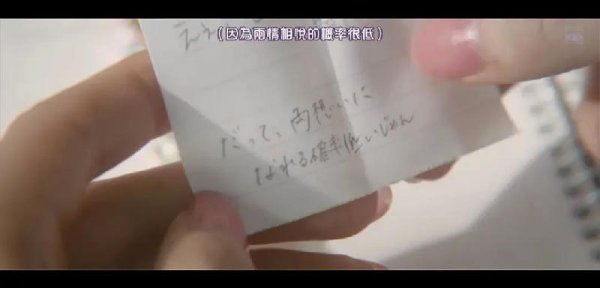 (因為兩情相悅的概率很低)
だって、両想いに
なれる確率低いじゃん